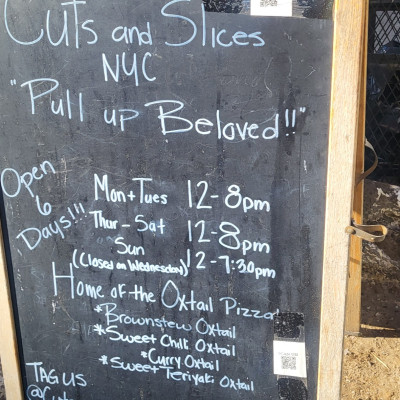 Cuts and Slices
NYC
"Pull up Beloved!!"
Open
6
Days!!!
Mon+Tues 12-8pm
Thur-Sat 12-8pm
Sun 12-7:30pm
(Closed on Wednesday)
Home of the Oxtail Pizza!
*Brownstew Oxtail
*Sweet Chili Oxtail
*Curry Oxtail
*Sweet Teriyaki Oxtail
TAG US